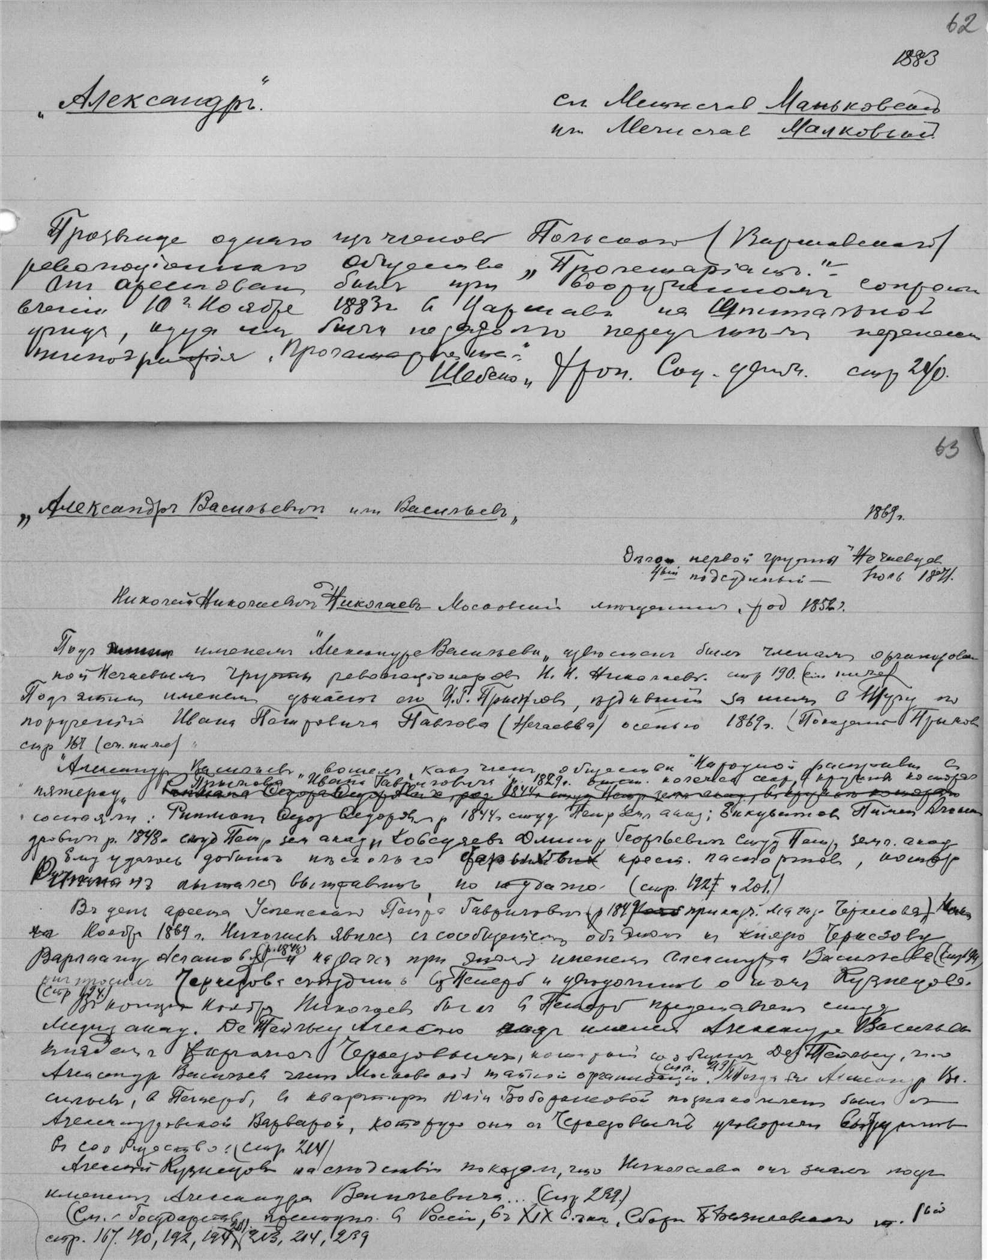 62
1883
„Александръ".
см Мечислав Маньковскій
или Мечислав Малковскій
Прозвище одного изъ членовъ Польскаго (Варшавскаго)
революціоннаго общества „Пролетаріатъ."
арестованъ былъ при вооруженномъ сопроти
вленіи 10го Ноября 1883г въ Варшавѣ на
улицѣ, куда была незадолго передъ тѣмъ перенесена
типографія „Пролетаріата".
Шебеко „Хрон. Соц. движ. стр 240.
63
„Александръ Васильевичъ или Васильевъ„
1869г.
Дѣло первой группы "Нечаевцев
подсудимый — Іюль 1871.
Николай Николаевичъ Николаевъ Московскій мѣщанинъ, род 185
Подъ именемъ "Александра Васильева„ извѣстенъ былъ членамъ организован
ной Нечаевымъ группы революціонеровъ Н. Н. Николаевъ. стр 190. (см ниже)
Подъ этимъ именемъ узналъ его И.Г. Прыжовъ, ѣздившій за нимъ въ Тулу по
порученію Ивана Петровича Павлова (Нечаева) осенью 1869г. (Показаніе Прыжова
стр 167 (см. ниже)
"Александръ Васильевъ„ вошелъ, какъ членъ общества "Народной расправы въ
пятерку„ Прыжова Ивана Гавриловича р. 1829г. кружокъ которой
состояли: Рипманъ Федор Федоров р 1844 студ Петр Зем акад; Енкуватовъ Пименъ Алексан
дровичъ р. 1848г студ Петр зем акад и Ковсуяевъ Дмитр Георгьевичъ студ Петр. земл. акад
Ему удалось добыть нѣсколько крест. паспортовъ, который
пытался выставить, но неудачно. (стр. 192 и 201.)
Въ день ареста Успенскаго Петра Гавриловича (р 1847 приказч. магаз. Черкесова)
Ноября 1869г. Николаевъ явился съ сообщеніемъ объ этомъ къ князю Черкезову
Варлааму Аслановичу (р. 1846) и назвался при этомъ именемъ Александра Васильева (стр 194)
онъ просилъ Черкезова съѣздить въ Петерб и увѣдомить о томъ Кузнецова.
(стр 194)
Въ концѣ Ноября Николаевъ былъ въ Петерб представленъ студ
Медиц акад. Де Тейльсу Алексѣю подъ именемъ Александра Васильева
княземъ Варлаамомъ Черкезовымъ, который сообщилъ Де Тейльсу, что
Александръ Васильевъ членъ Московской тайной организаціи. стр. 213). Тогда же Александръ Ва
сильевъ, въ Петерб, въ квартирѣ Юліи Бобарыковой познакомленъ былъ съ
Александровской Варварой, которую онъ и Черкезовъ уговорили вступить
въ сообщество: (стр 214)
Алексѣй Кузнецовъ на слѣдствіи показалъ, что Николаева онъ зналъ подъ
именемъ Александра Васильевича... (стр 239)
(См. „Государств. преступл. въ Россіи, въ XIX в. Сборн Б. Базилевскаго т. I
стр. 167. 190, 192, 194, 201, 213, 214, 239